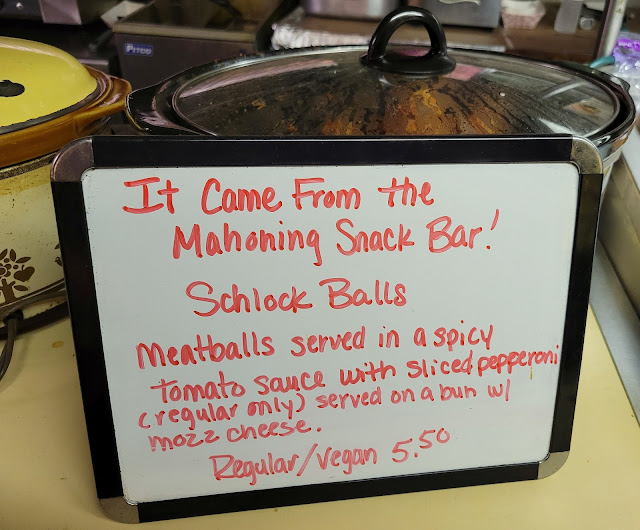 PITCO
It Came From the
Mahoning Snack Bar!
Schlock Balls
Meatballs served in a spicy
tomato sauce with sliced pepperoni
(regular only) served on a bun w/
mozz cheese.
Regular/Vegan 5.50